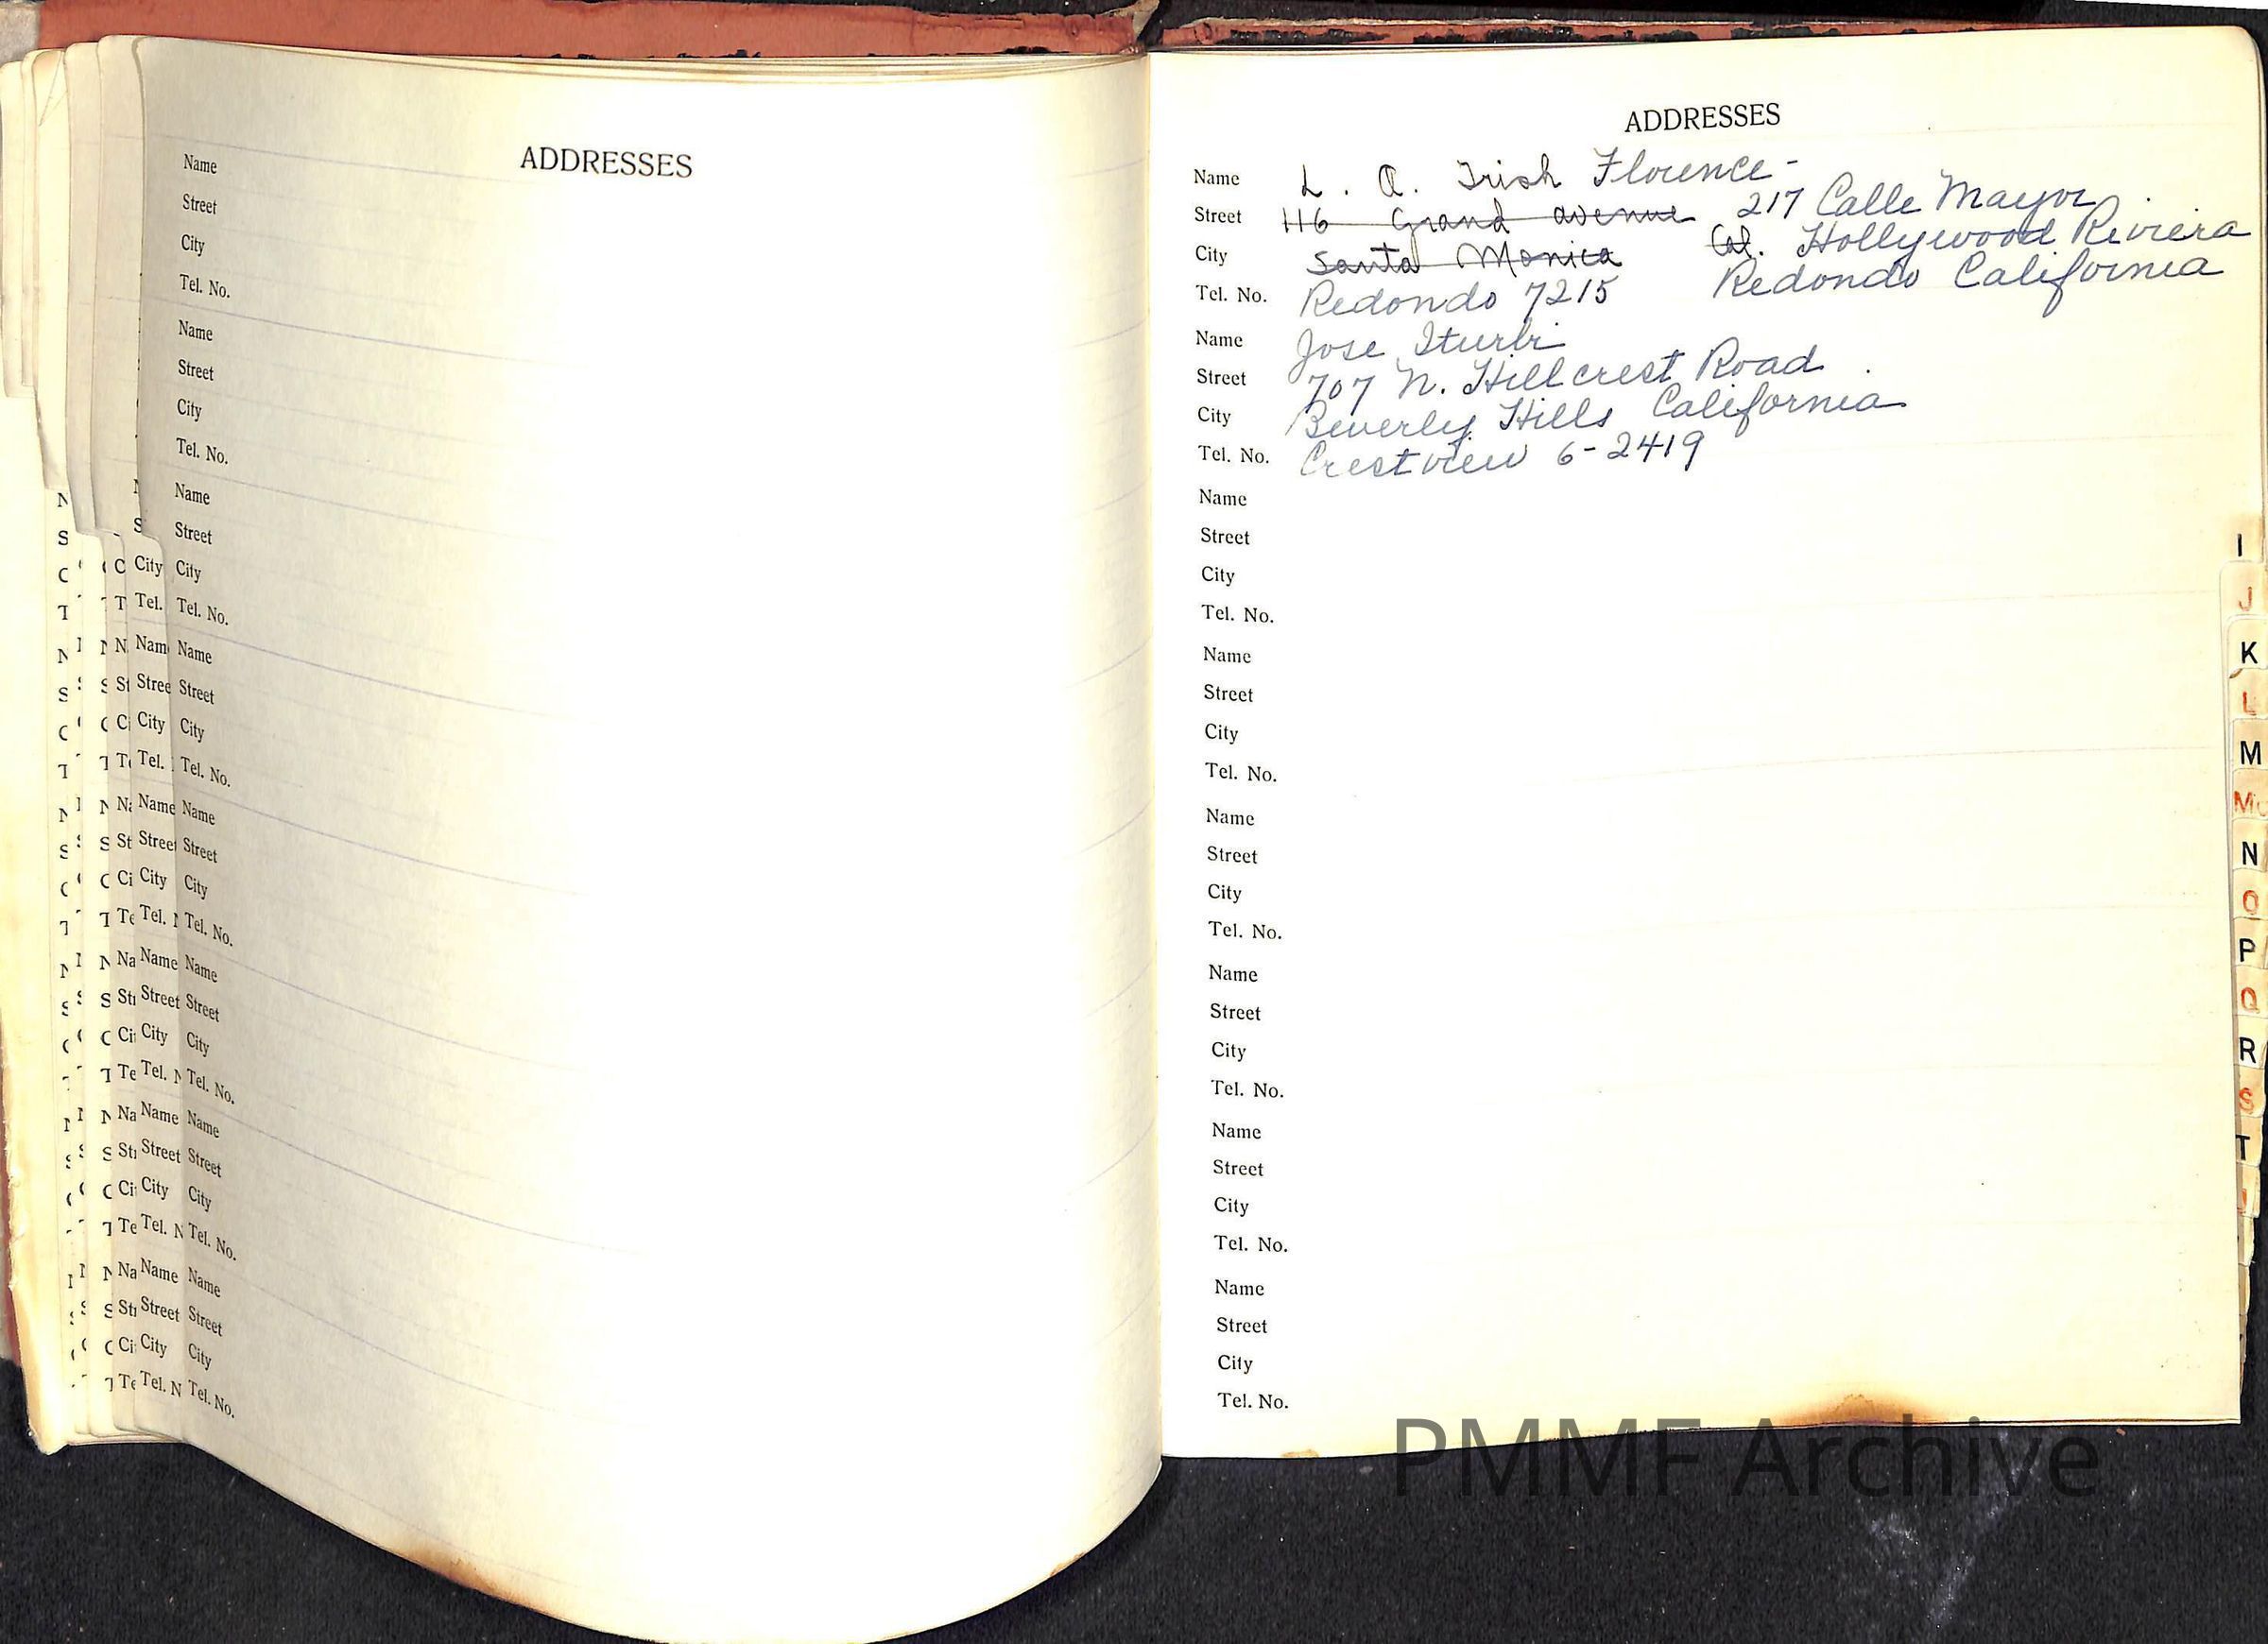 ADDRESSES
Name
Street
City
Tel. No.
Name
Street
City
Tel. No.
Name
Street
City
Tel. No.
Name
Street
City
Tel. No.
Name
Street
City
Tel. No.
Name
Street
City
Tel. No.
Name
Street
City
Tel. No.
Name
Street
City
Tel. No.
ADDRESSES
Name L. A. Irish Florence -
Street 116 Grand avenue 217 Calle Mayor
City Santa Monica Cal. Hollywood Riviera
Tel. No. Redondo 7215 Redondo California
Name Jose Iturbi
Street 707 N. Hillcrest Road
City Beverly Hills California
Tel. No. Crestview 6-2419
Name
Street
City
Tel. No.
Name
Street
City
Tel. No.
Name
Street
City
Tel. No.
Name
Street
City
Tel. No.
Name
Street
City
Tel. No.
Name
Street
City
Tel. No.
I
J
K
L
M
Mc
N
O
P
Q
R
S
T
PMMF Archive